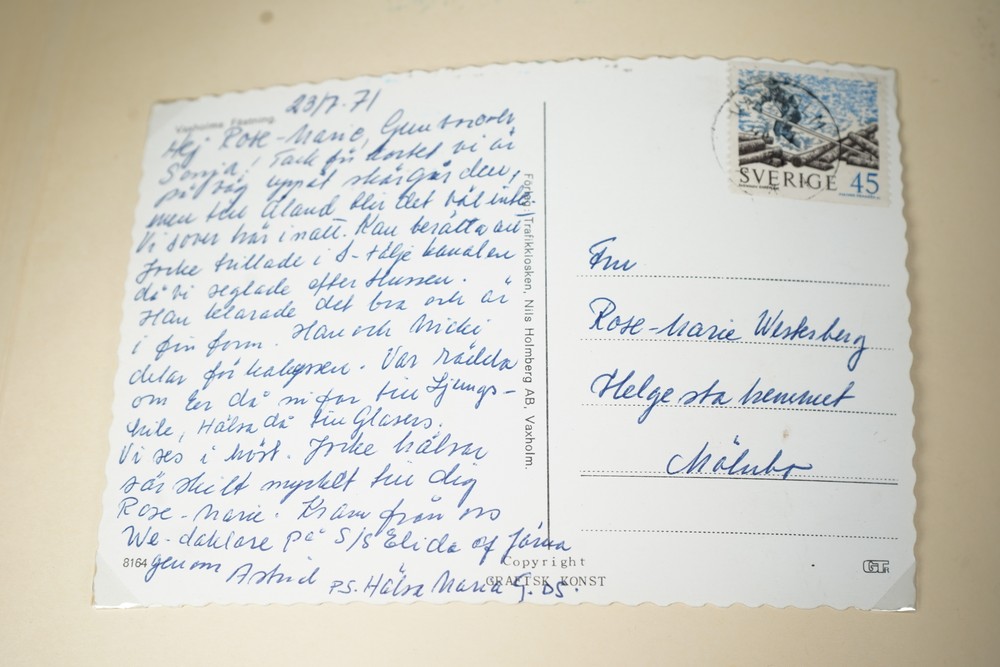 23/7-71
Vaxholms Fästning.
Hej Rose-Marie, Gun och
Sonja! Tack för kortet vi är
på väg uppåt skärgården,
men till Åland blir det väl inte.
Vi sover här i natt. Kan berätta att
Jocke trillade i S-tälje kanalen
då vi seglade efter slussen.
Han klarade det bra och är
i fin form. Han och Micki
delar förhabyssen. Var rädda
om Er då ni far till Ljungs-
kile, Hälsa då till Glasers.
Vi ses i höst. Jocke hälsar
särskilt mycket till dig
Rose-Marie. Kram från oss
We-daklare på S/S Elida of Järna
genom Astrid
PS. Hälsa Maria G. DS.
8164
Förlag: Trafikkiosken, Nils Holmberg AB, Vaxholm.
Copyright
GRAFISK KONST
SVERIGE 45
Fru
Rose-Marie Westerberg
Helgestahemmet
Mölnbo